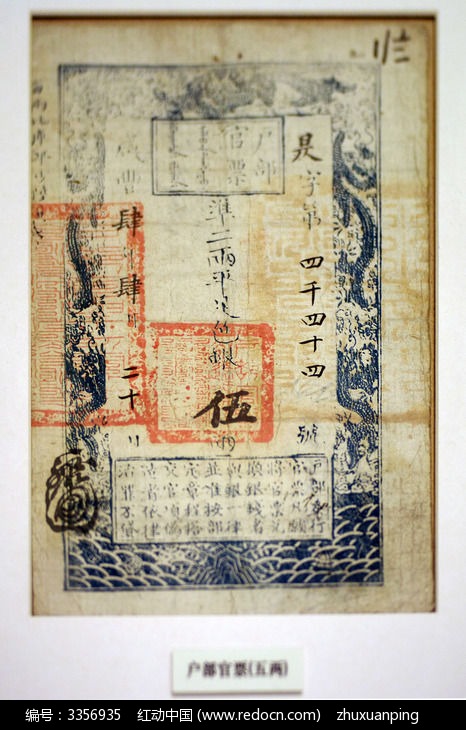 字第四千四十四號
戶部
官票
準二兩平足色銀伍兩
咸豐肆年肆月二十日
戶部奏行
官票凡願
將官票兌
換銀錢者
與銀一律
並准按部
定章程搭
交官項偽
造者依律
治罪不貸
户部官票(五两)
编号：3356935 红动中国 (www.redocn.com) zhuxuanping